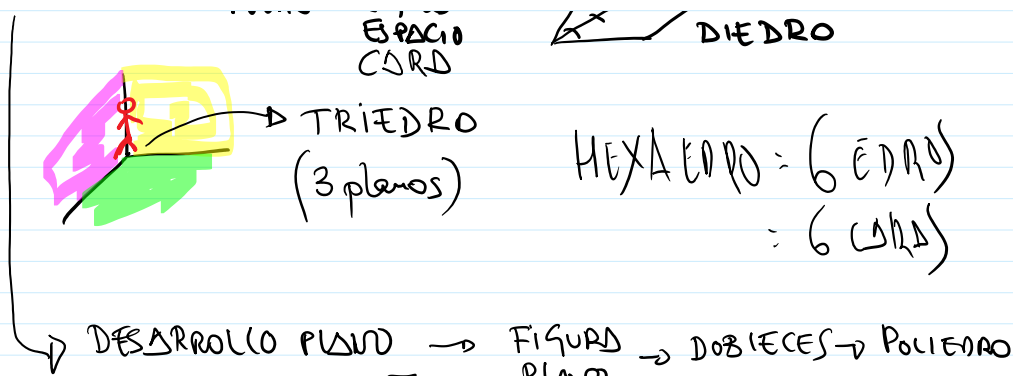 ESPACIO
CARA
DIEDRO
TRIEDRO
(3 planos)
HEXAEDRO = 6 EDROS
= 6 CARAS
DESARROLLO PLANO → FIGURA PLANA → DOBLECES → POLIEDRO